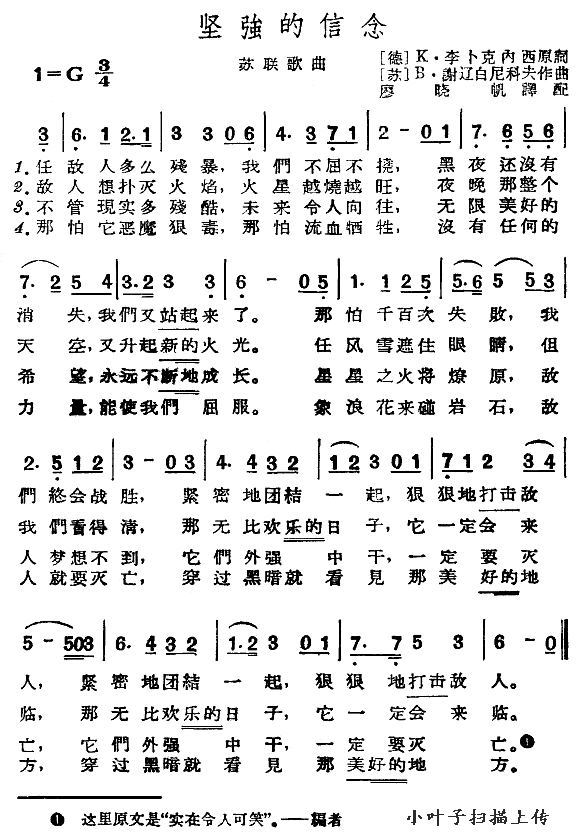 坚強的信念
苏联歌曲
1=G 3/4
[德]K·李卜克內西原詞
[苏]B·謝辽白尼科夫作曲
廖晓帆譯配
3 | 6. 1 2.1 | 3 3 0 6 | 4. 3 7 1 | 2 - 0 1 | 7. 6 5 6 |
1.任敌人多么残暴，我們不屈不撓，黑夜还沒有
2.敌人想扑灭火焰，火星越燒越旺，夜晚那整个
3.不管現实多殘酷，未来令人向往，无限美好的
4.那怕它恶魔狠毒，那怕流血牺牲，沒有任何的
7. 2 5 4 | 3.2 3 3 | 6 - 0 5 | 1. 1 2 5 | 5.6 5 5 3 |
消失，我們又站起来了。那怕千百次失敗，我
天空，又升起新的火光。任风雪遮住眼睛，但
希望，永远不断地成长。星星之火将燎原，敌
力量，能使我們屈服。象浪花来碰岩石，敌
2. 5 1 2 | 3 - 0 3 | 4. 4 3 2 | 1 2 3 0 1 | 7 1 2 3 4 |
們終会战胜，紧密地团結一起，狠狠地打击敌
我們看得清，那无比欢乐的日子，它一定会来
人梦想不到，它們外强中干，一定要灭
人就要灭亡，穿过黑暗就看見那美好的地
5 - 5 0 3 | 6. 4 3 2 | 1.2 3 0 1 | 7. 7 5 3 | 6 - 0 ||
人，紧密地团結一起，狠狠地打击敌人。
临，那无比欢乐的日子，它一定会来临。
亡，它們外强中干，一定要灭亡。❶
方，穿过黑暗就看見那美好的地方。
❶ 这里原文是“实在令人可笑”。——編者
小叶子扫描上传